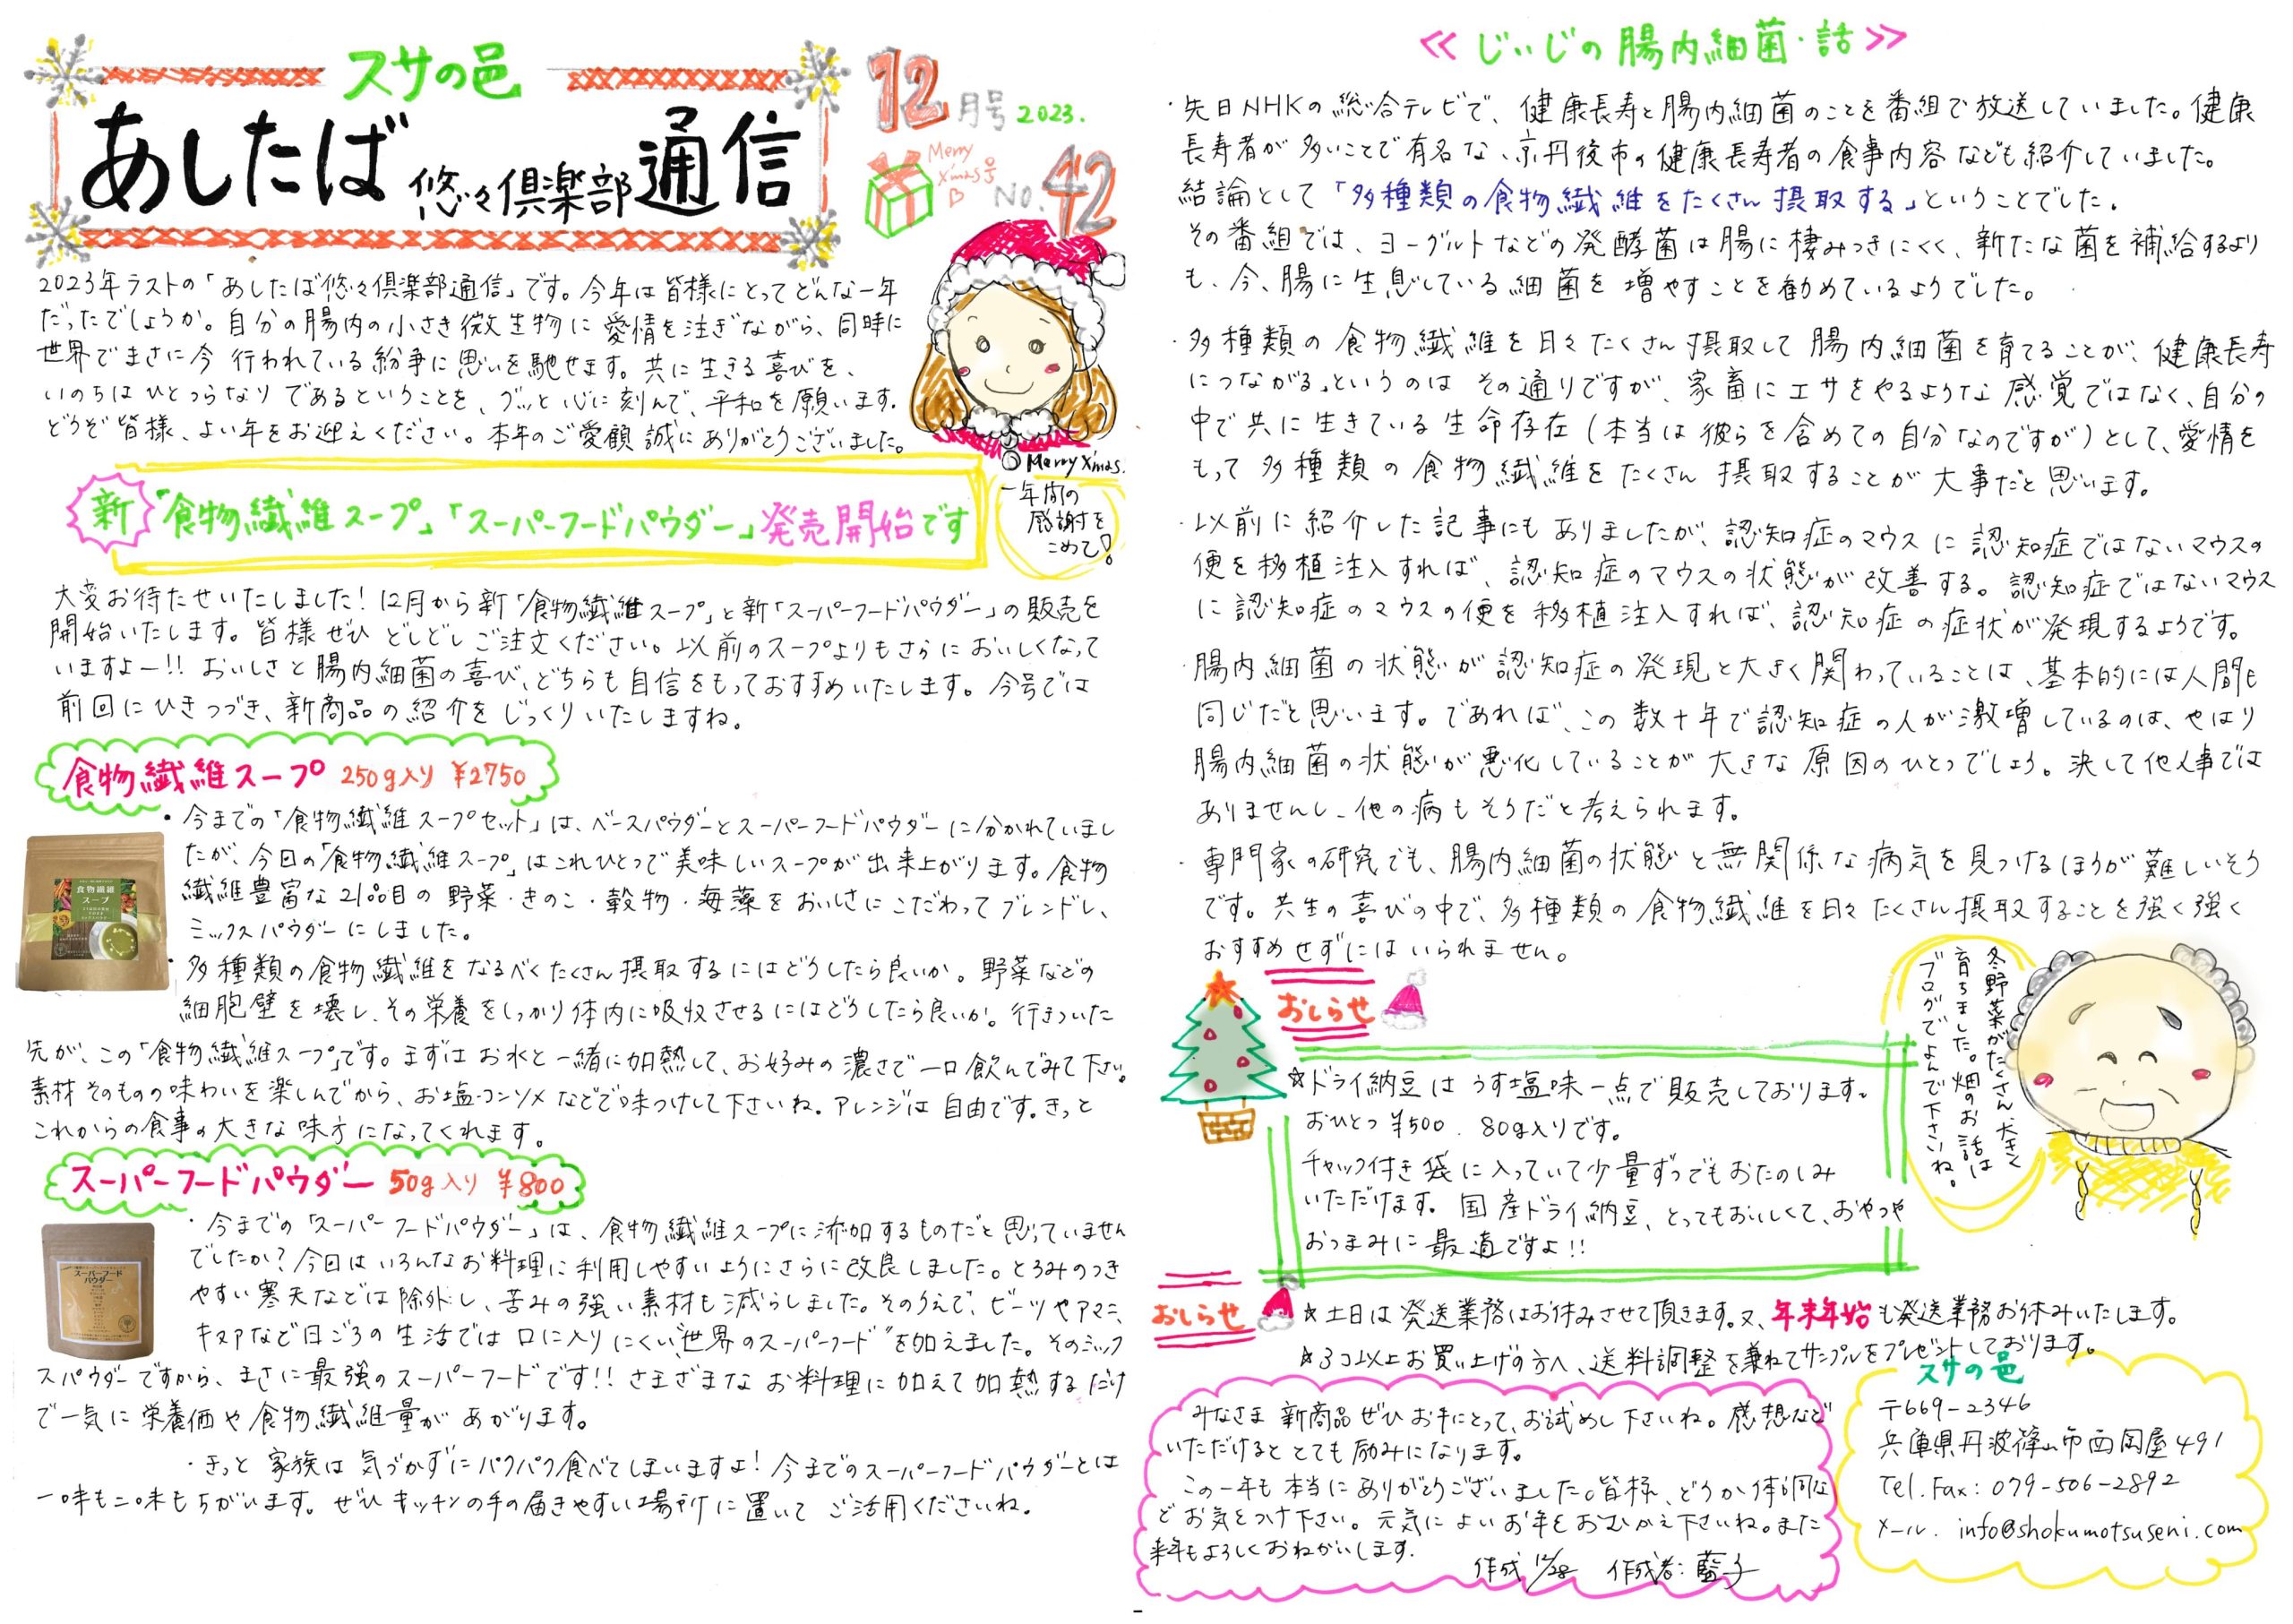 スサの邑
あしたば悠々倶楽部通信
12月号 2023.
Merry
X'mas号
No.42
2023年ラストの「あしたば悠々倶楽部通信」です。今年は皆様にとってどんな一年
だったでしょうか。自分の腸内の小さき微生物に愛情を注ぎながら、同時に
世界でまさに今行われている紛争に思いを馳せます。共に生きる喜びを、
いのちはひとつらなりであるということを、グッと心に刻んで、平和を願います。
どうぞ皆様、よい年をお迎えください。本年のご愛顧誠にありがとうございました。
Merry X'mas.
一年間の
感謝を
こめて!
新「食物繊維スープ」「スーパーフードパウダー」発売開始です
大変お待たせいたしました！12月から新「食物繊維スープ」と新「スーパーフードパウダー」の販売を
開始いたします。皆様ぜひどしどしご注文ください。以前のスープよりもさらにおいしくなって
いますよー!! おいしさと腸内細菌の喜び、どちらも自信をもっておすすめいたします。今号では
前回にひきつづき、新商品の紹介をじっくりいたしますね。
食物繊維スープ 250g入り ¥2750
・今までの「食物繊維スープセット」は、ベースパウダーとスーパーフードパウダーに分かれていまし
たが、今回の「食物繊維スープ」はこれひとつで美味しいスープが出来上がります。食物
繊維豊富な21品目の野菜・きのこ・穀物・海藻をおいしさにこだわってブレンドし、
ミックスパウダーにしました。
・多種類の食物繊維をなるべくたくさん摂取するにはどうしたら良いか。野菜などの
細胞壁を壊し、その栄養をしっかり体内に吸収させるにはどうしたら良いか。行きついた
先が、この「食物繊維スープ」です。まずはお水と一緒に加熱して、お好みの濃さで一口飲んでみて下さい。
素材そのものの味わいを楽しんでから、お塩・コンソメなどで味つけして下さいね。アレンジは自由です。きっと
これからの食事の大きな味方になってくれます。
食物繊維
スープ
スーパーフードパウダー 50g入り ¥800
・今までの「スーパーフードパウダー」は、食物繊維スープに添加するものだと思っていません
でしたか？今回はいろんなお料理に利用しやすいようにさらに改良しました。とろみのつき
やすい寒天などは除外し、苦みの強い素材も減らしました。そのうえで、ビーツやアマニ、
キヌアなど日ごろの生活では口に入りにくい“世界のスーパーフード”を加えました。そのミック
スパウダーですから、まさに最強のスーパーフードです!! さまざまなお料理に加えて加熱するだけ
で一気に栄養価や食物繊維量があがります。
・きっと家族は気づかずにパクパク食べてしまいますよ！今までのスーパーフードパウダーとは
一味も二味もちがいます。ぜひキッチンの手の届きやすい場所に置いてご活用くださいね。
スーパーフード
パウダー
≪じいじの腸内細菌・話≫
・先日NHKの総合テレビで、健康長寿と腸内細菌のことを番組で放送していました。健康
長寿者が多いことで有名な、京丹後市の健康長寿者の食事内容なども紹介していました。
結論として「多種類の食物繊維をたくさん摂取する」ということでした。
その番組では、ヨーグルトなどの発酵菌は腸に棲みつきにくく、新たな菌を補給するより
も、今、腸に生息している細菌を増やすことを勧めているようでした。
・多種類の食物繊維を日々たくさん摂取して腸内細菌を育てることが、健康長寿
につながる」というのはその通りですが、家畜にエサをやるような感覚ではなく、自分の
中で共に生きている生命存在（本当は彼らを含めての自分なのですが）として、愛情を
もって多種類の食物繊維をたくさん摂取することが大事だと思います。
・以前に紹介した記事にもありましたが、認知症のマウスに認知症ではないマウスの
便を移植注入すれば、認知症のマウスの状態が改善する。認知症ではないマウス
に認知症のマウスの便を移植注入すれば、認知症の症状が発現するようです。
・腸内細菌の状態が認知症の発現と大きく関わっていることは、基本的には人間も
同じだと思います。であれば、この数十年で認知症の人が激増しているのは、やはり
腸内細菌の状態が悪化していることが大きな原因のひとつでしょう。決して他人事では
ありませんし、他の病もそうだと考えられます。
・専門家の研究でも、腸内細菌の状態と無関係な病気を見つけるほうが難しいそう
です。共生の喜びの中で、多種類の食物繊維を日々たくさん摂取することを強く強く
おすすめせずにはいられません。
冬野菜がたくさん、大きく
育ちました。畑のお話は
ブログでよんで下さいね。
おしらせ
☆ドライ納豆はうす塩味一点で販売しております。
おひとつ¥500. 80g入りです。
チャック付き袋に入っていて少量ずつでもおたのしみ
いただけます。国産ドライ納豆、とってもおいしくて、おやつや
おつまみに最適ですよ!!
おしらせ
☆土日は発送業務はお休みさせて頂きます。又、年末年始も発送業務お休みいたします。
☆3コ以上お買い上げの方へ、送料調整を兼ねてサンプルをプレゼントしております。
みなさま新商品ぜひお手にとって、お試めし下さいね。感想など
いただけるととても励みになります。
この一年も本当にありがとうございました。皆様、どうか体調な
どお気をつけ下さい。元気によいお年をおむかえ下さいね。また
来年もよろしくおねがいします。
作成 12/28 作成者：藍子
スサの邑
〒669-2346
兵庫県丹波篠山市西岡屋491
Tel.Fax: 079-506-2892
メール. info@shokumotsuseni.com